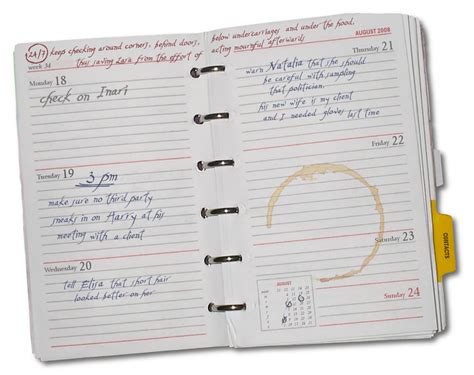 24/7 keeps checking around corners, behind doors,
thus saving Zara from the effort of
week 34
Monday 18
check on Inari
Tuesday 19
3 pm
make sure no third party
sneaks in on Harry at his
meeting with a client
Wednesday 20
tell Elisa that short hair
looked better on her
below undercarriages and under the hood,
acting mournful afterwards
AUGUST 2008
Thursday 21
warn Natalia that she should
be careful with sampling
that politician.
his new wife is my client
and I needed gloves last time
Friday 22
CONTACTS
Saturday 23
AUGUST
Sunday 24